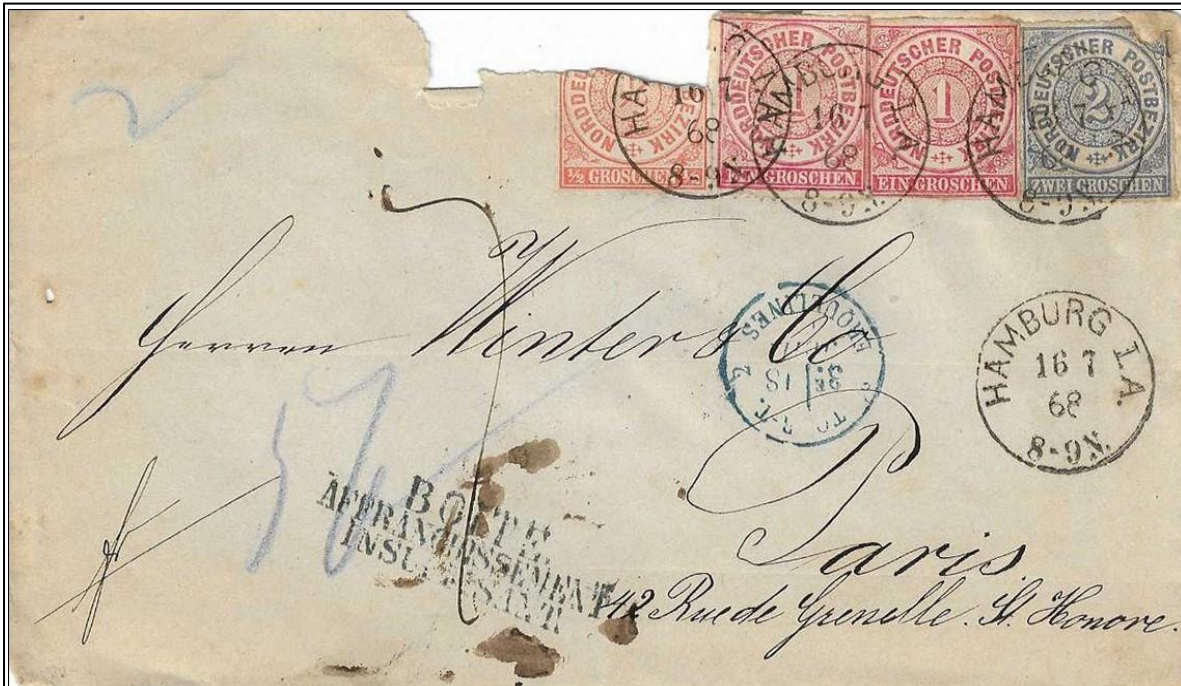 NORDDEUTSCHER POSTBEZIRK
1/2 GROSCHEN
NORDDEUTSCHER POSTBEZIRK
1
EIN GROSCHEN
NORDDEUTSCHER POSTBEZIRK
1
EIN GROSCHEN
NORDDEUTSCHER POSTBEZIRK
2
ZWEI GROSCHEN
HA
16 7
68
8-9N.
HAMBURG I.A.
16 7
68
8-9N.
HAM
8-9N.
Herren Winter & Co
ERQUELINES
HAMBURG I.A.
16 7
68
8-9N.
BOITE
AFFRANCHISSEMENT
INSUFFISANT
Paris
42 Rue de Grenelle. St. Honore.